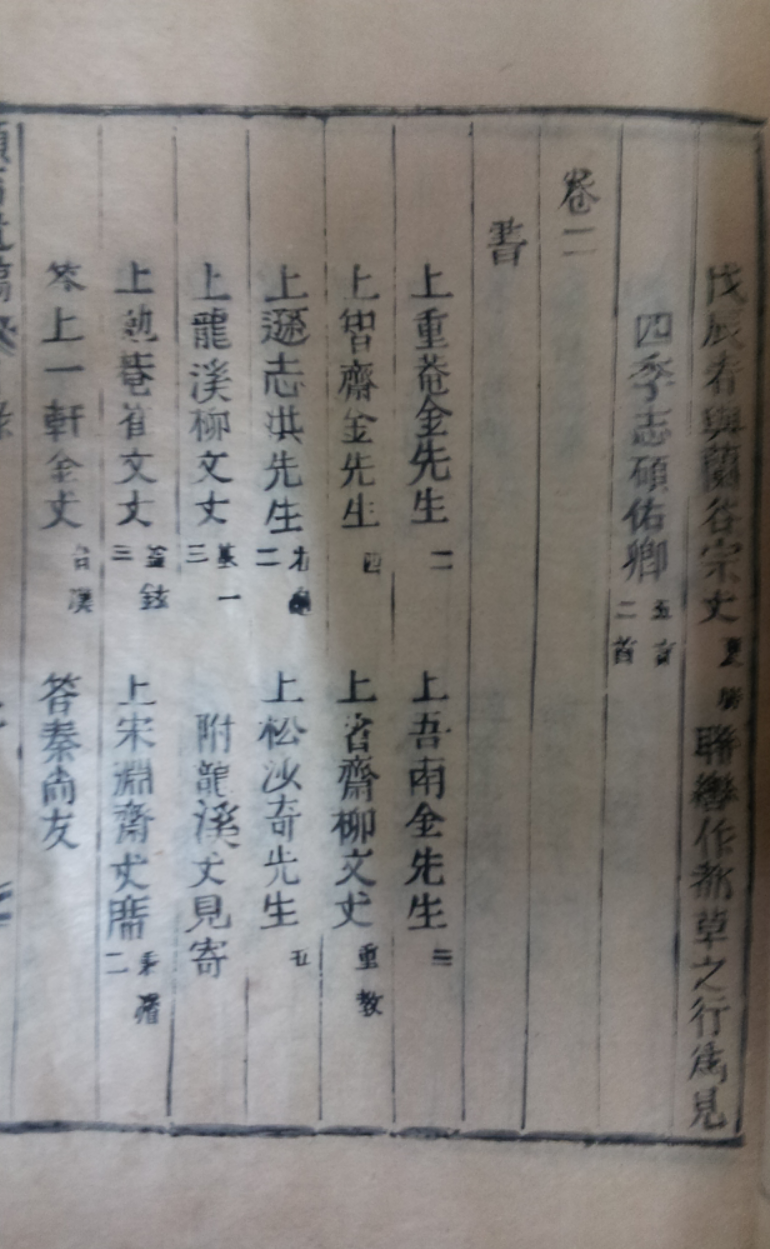 戊辰春與蘭谷宗丈夏勝聯轡作都草之行爲見
四季志碩佑卿五言二首
卷二
書
上重菴金先生二 上吾南金先生三
上智齋金先生四 上省齋柳文丈重教
上遯志洪先生二 上松沙奇先生五
上龍溪柳文丈基一三 附龍溪丈見寄
上勉菴崔文丈益鉉三 上宋淵齋丈席秉璿二
答上一軒金丈 答秦尙友